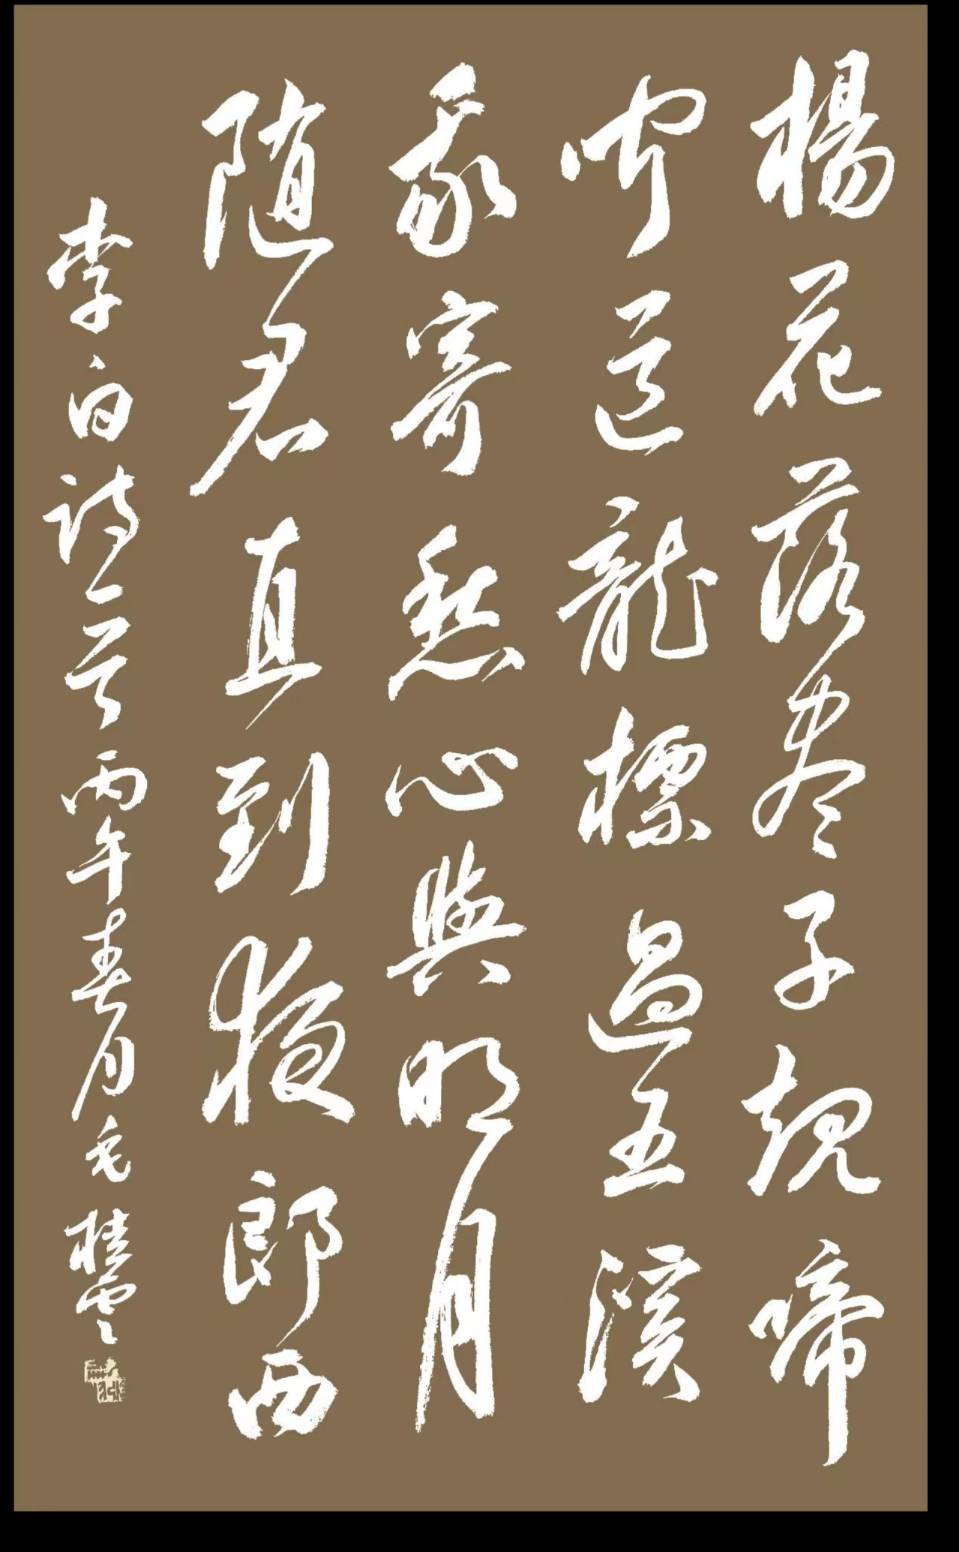 楊花落尽子規啼
聞道龍標過五溪
我寄愁心與明月
随君直到夜郎西
李白詩一首丙午春月毛桂雲